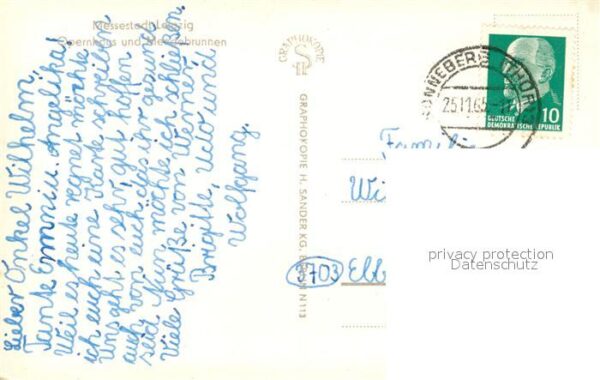 Messestadt Leipzig
Opernhaus und Mendebrunnen
Lieber Onkel Wilhelm,
Tante Emmi u. Angelika!
Weil es heute regnet möchte
ich euch eine Karte schreiben.
Uns geht es sehr gut hoffen
auch von euch das ihr gesund
seid. Nun möchte ich schließen.
Viele Grüße von Werner,
Brigitte, und
Wolfgang.
GRAPHOKOPIE
GRAPHOKOPIE H. SANDER KG, BERLIN N 113
SONNEBERG (THÜR)
25.11.65
10
DEUTSCHE
DEMOKRATISCHE REPUBLIK
Famil
Wi
3703 Elb
privacy protection
Datenschutz